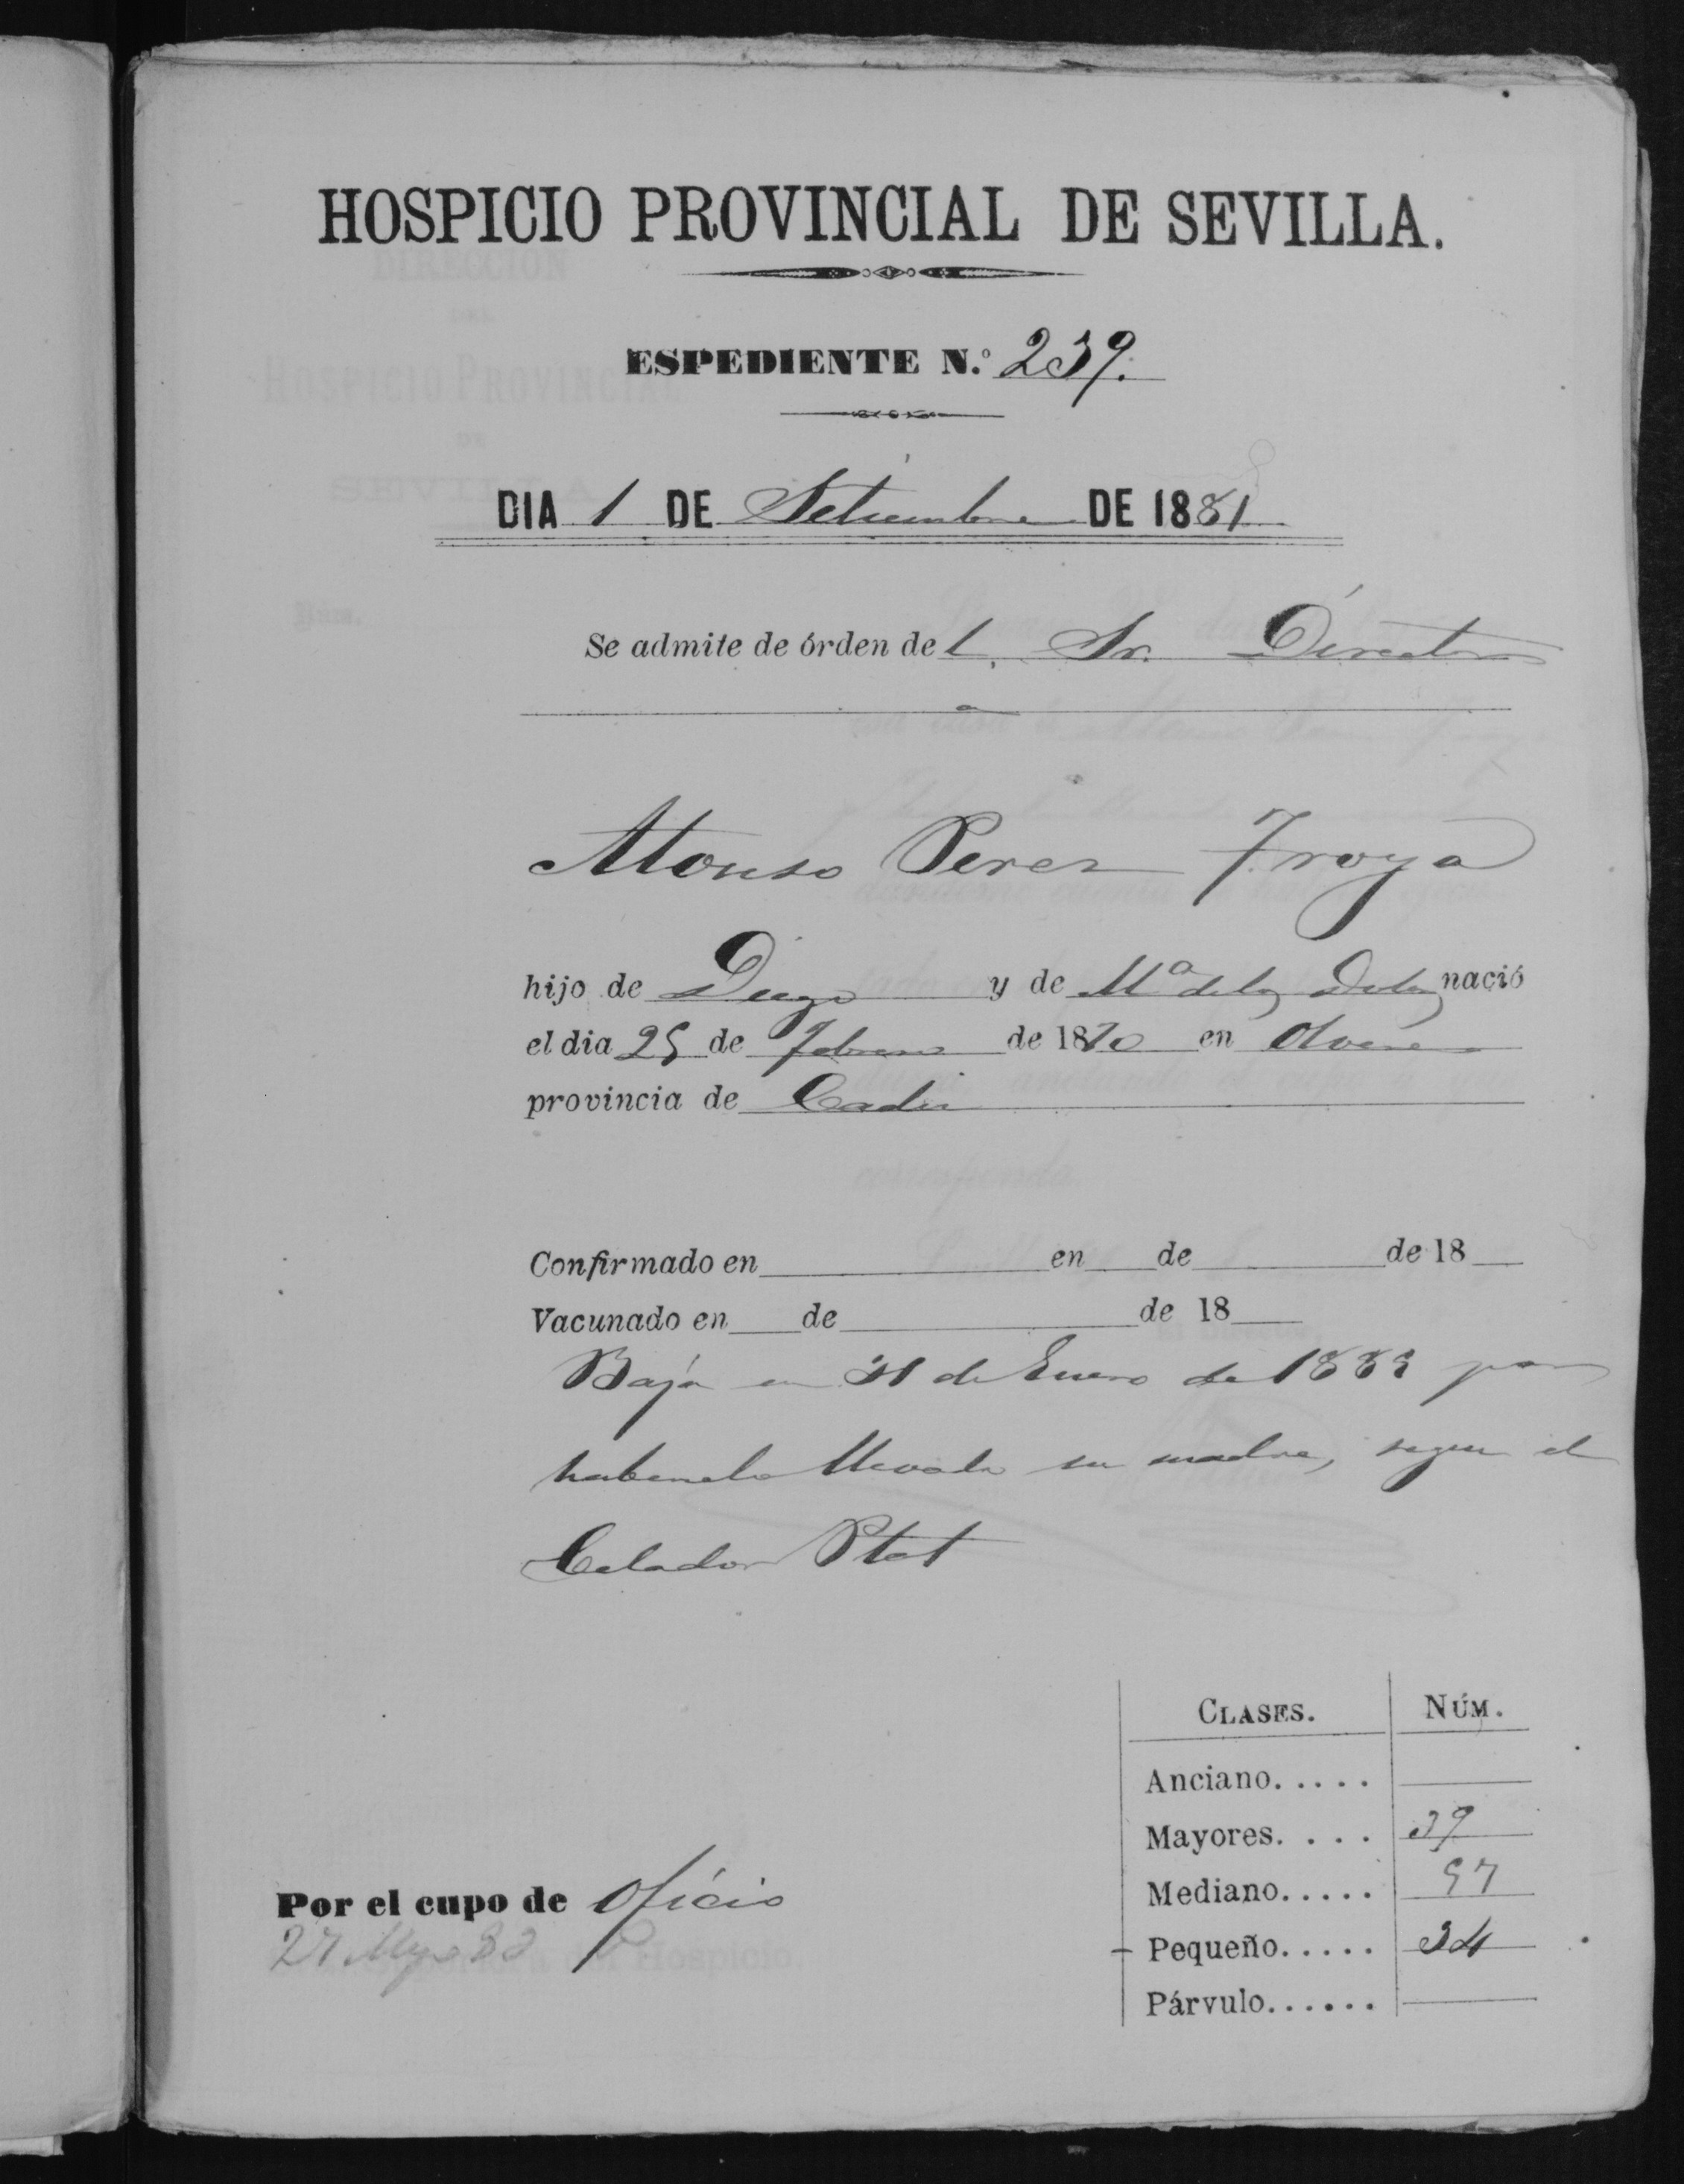 HOSPICIO PROVINCIAL DE SEVILLA.
ESPEDIENTE N.º 239.
DIA 1 DE Setiembre DE 1881
Se admite de órden del Sr. Director
a
Alonso Perez Troya
hijo de Diego y de Mª de los Dols nació
el dia 25 de Febrero de 1870 en Olvera
provincia de Cadiz
Confirmado en en de de 18
Vacunado en de de 18
Baja en 31 de Enero de 1883 por
haberselo llevado su madre, segun el
Celador Ptot
CLASES. NÚM.
Anciano.....
Mayores.... 39
Mediano..... 57
Pequeño..... 34
Párvulo......
Por el cupo de Oficio
27 Myo 83